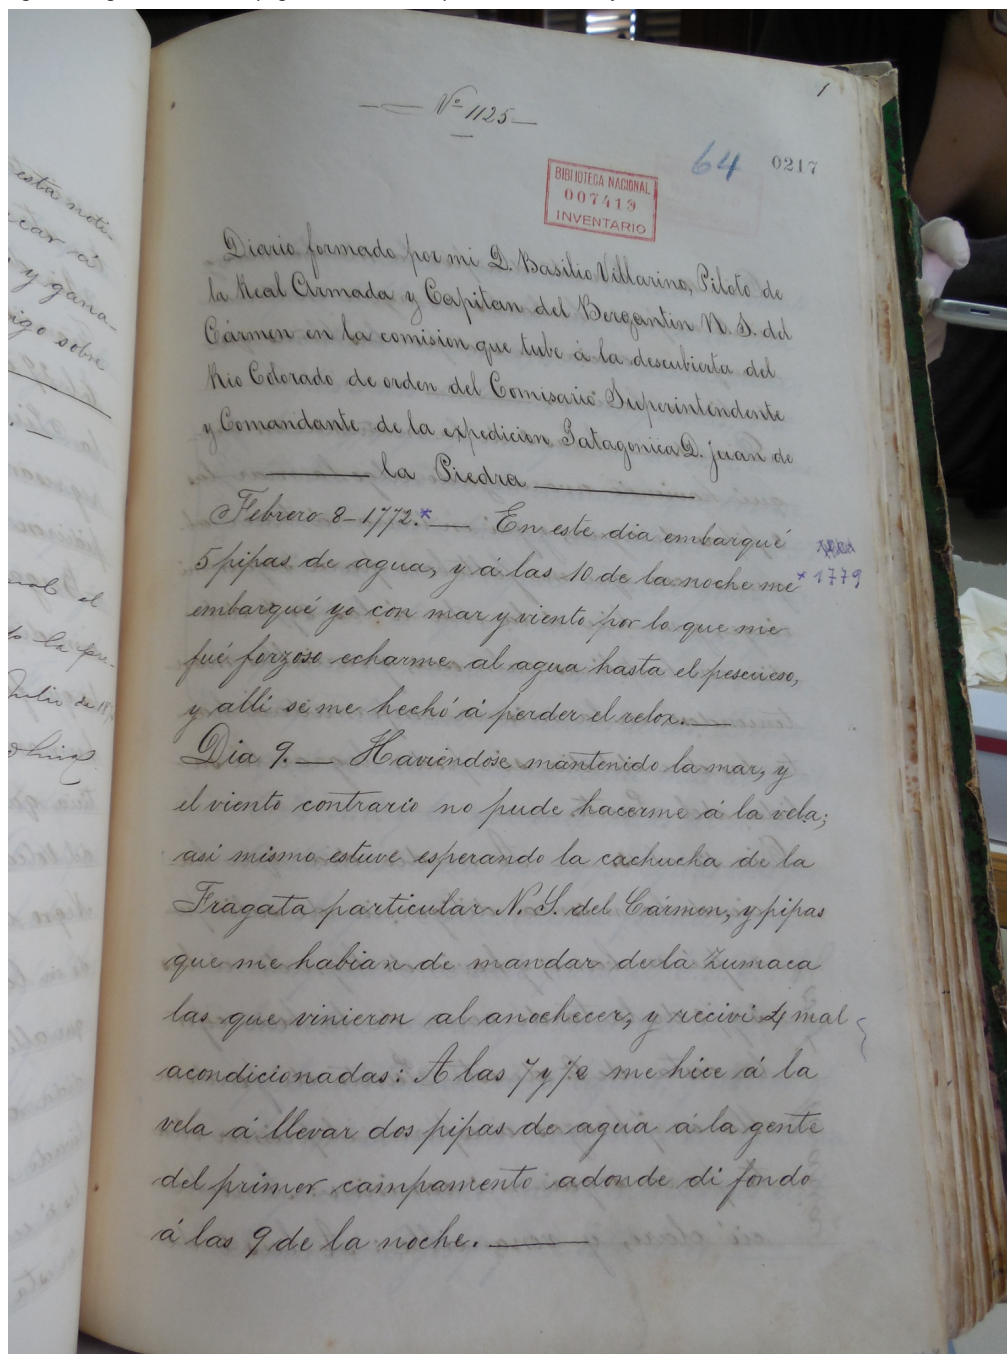 1
Nº 1125
64 0217
BIBLIOTECA NACIONAL
007419
INVENTARIO
Diario formado por mi D. Basilio Villarino, Piloto de
la Real Armada y Capitan del Bergantin N. S. del
Cármen en la comision que tube á la descubierta del
Rio Colorado de orden del Comisario Superintendente
y Comandante de la expedicion Patagonica D. Juan de
la Piedra
Febrero 8 - 1772.* — En este dia embarqué
5 pipas de agua, y á las 10 de la noche me
* 1779
embarqué yo con mar y viento por lo que me
fué forzoso echarme al agua hasta el pescueso,
y allí se me hechó á perder el relox. —
Dia 9. — Haviendose mantenido la mar, y
el viento contrario no pude hacerme á la vela;
asi mismo estuve esperando la cachucha de la
Fragata particular N. S. del Cármen, y pipas
que me habian de mandar de la Zumaca
las que vinieron al anochecer, y recivi 4 mal
acondicionadas: A las 7 y ½ me hice á la
vela á llevar dos pipas de agua á la gente
del primer campamento adonde di fondo
á las 9 de la noche. —
esta noti-
car á
y gana-
igo sobre
el
la pre-
Julio de 18